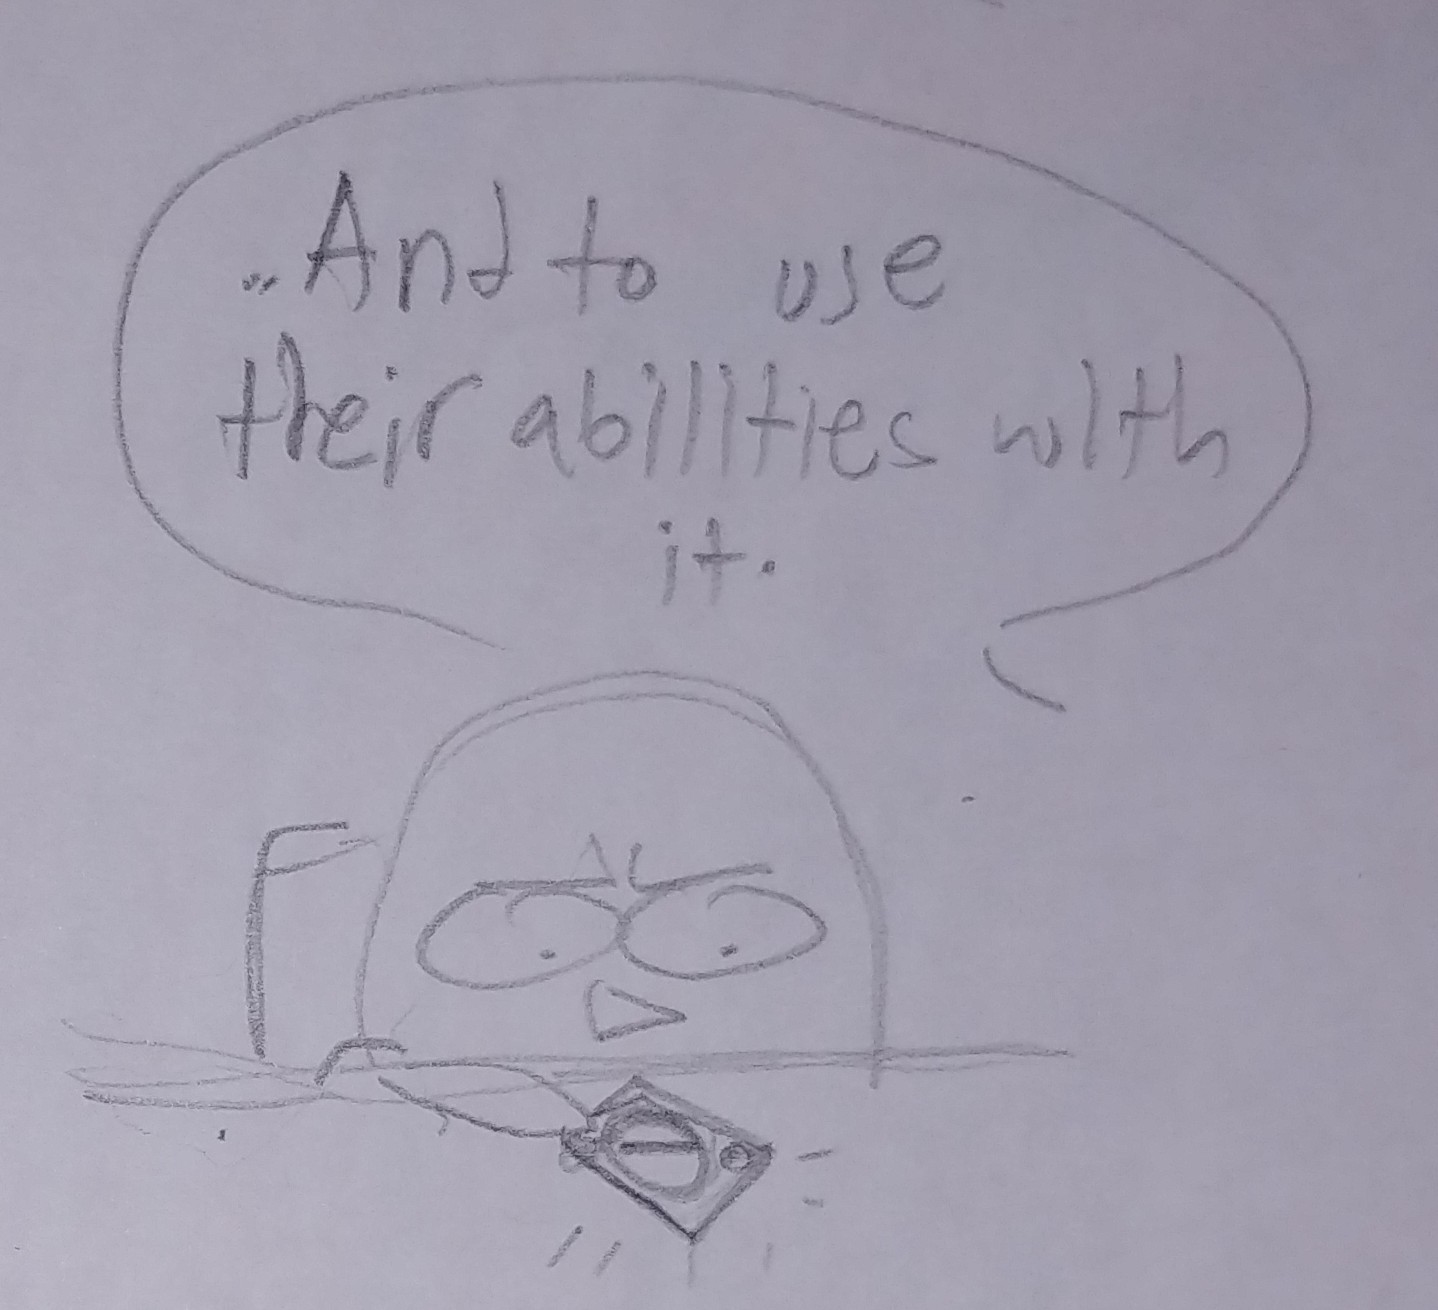 ..And to use
their abilities with
it.